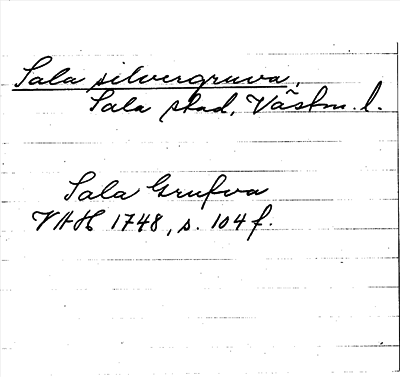 Sala silvergruva,
Sala stad, Västm. l.
Sala Grufva
VAH 1748, s. 104 f.